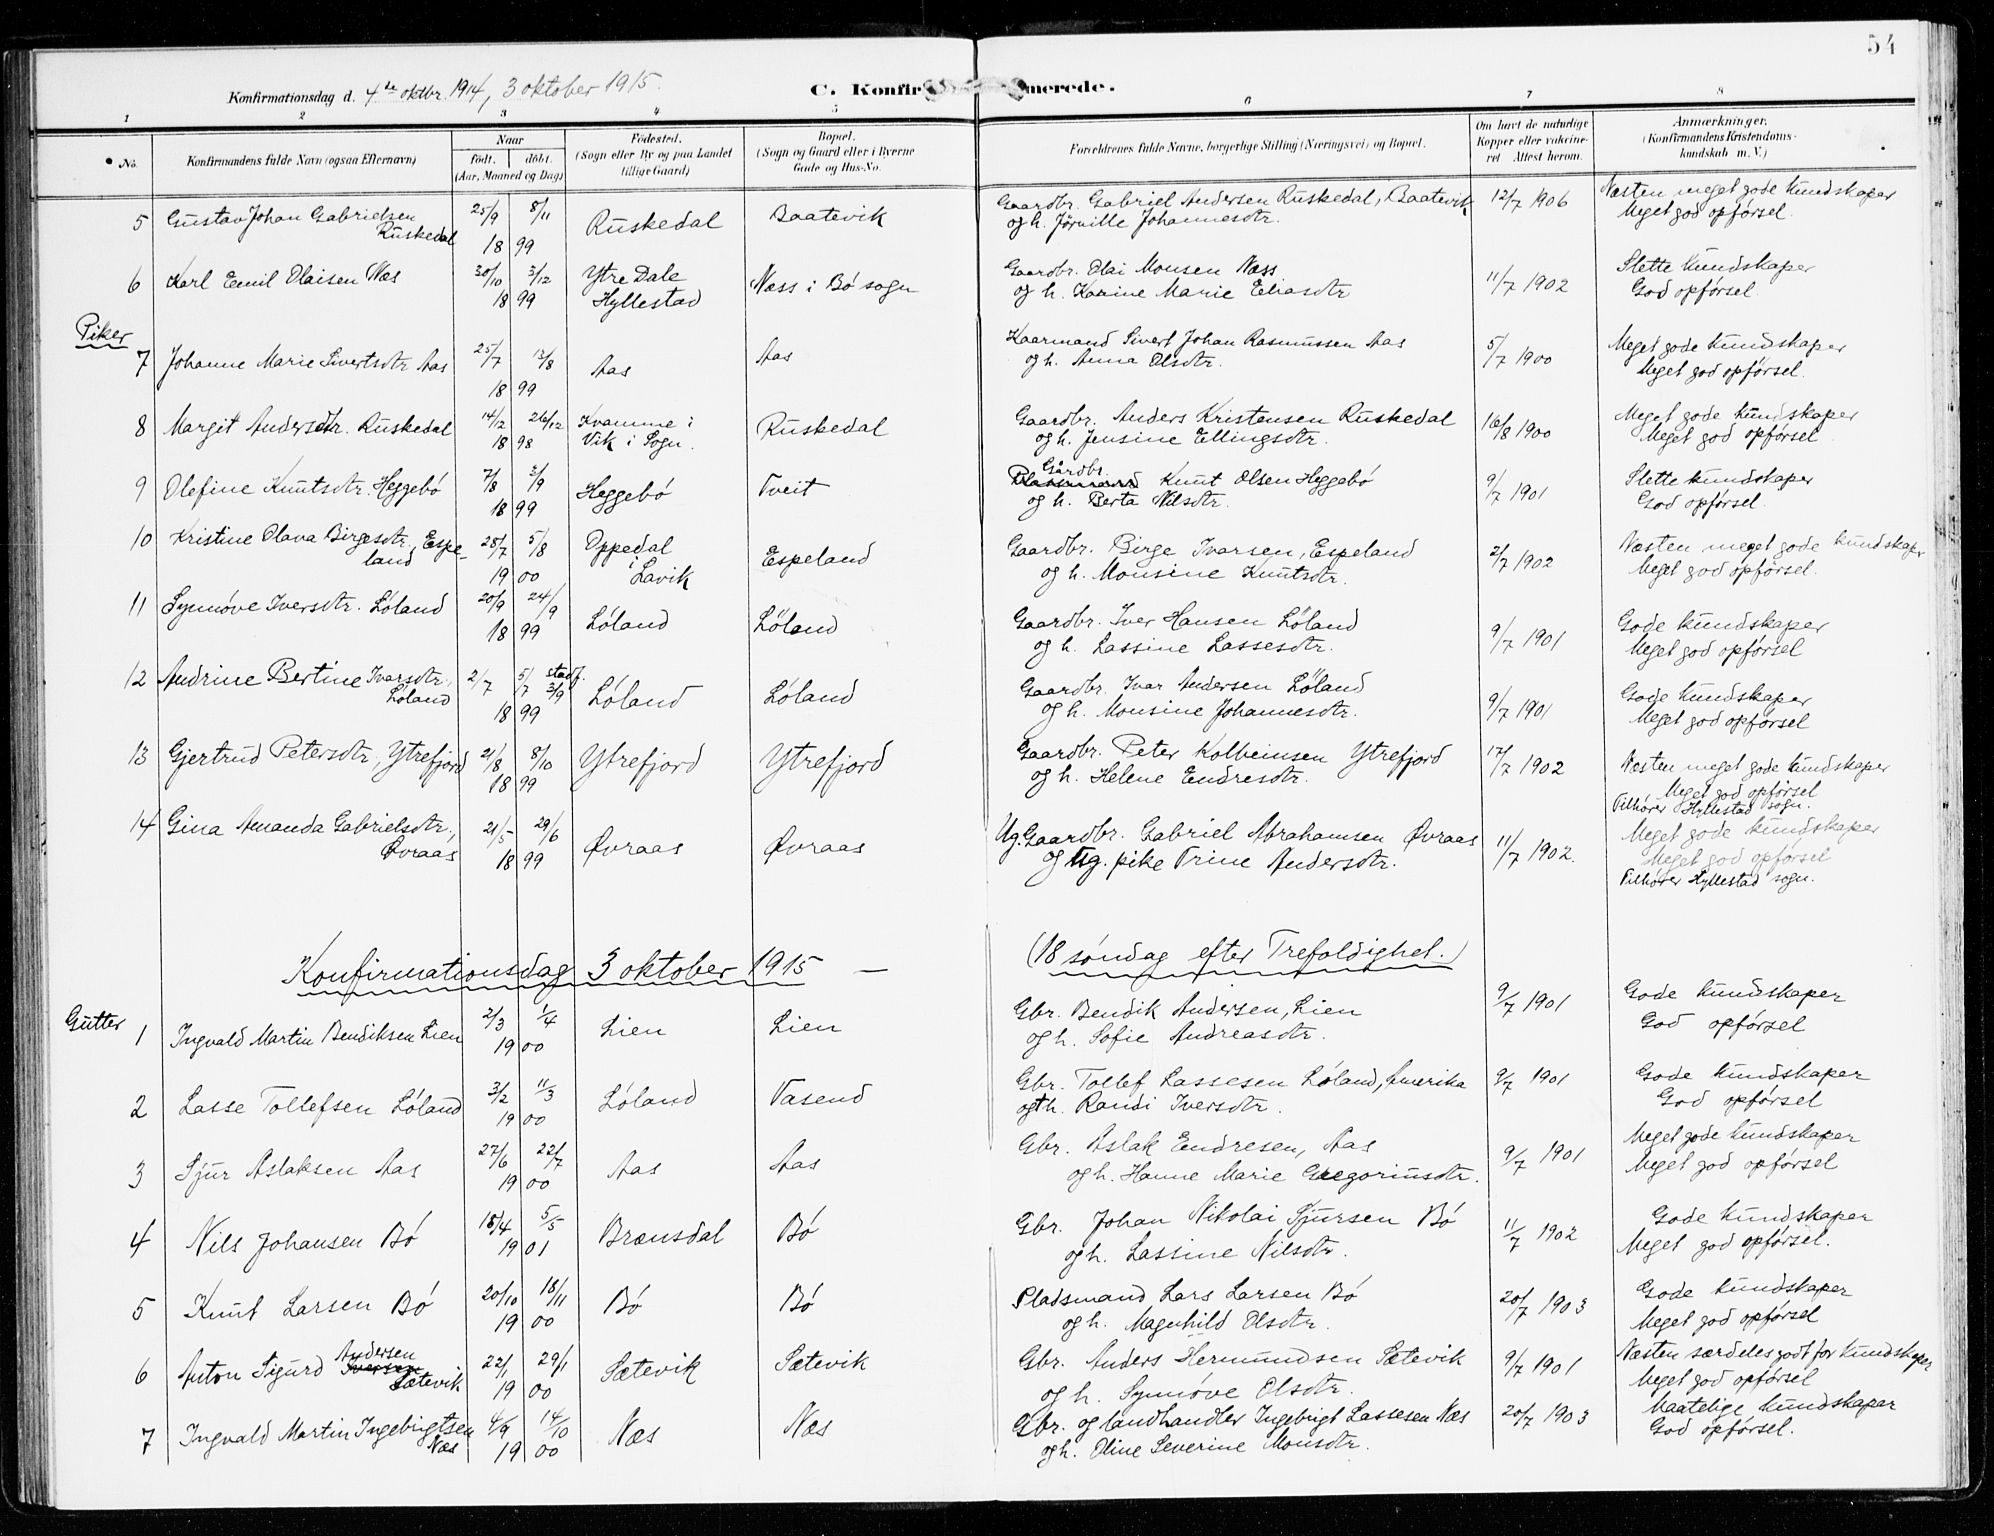 54
Konfirmationsdag d. 4de oktbr. 1914, 3 oktober 1915. C. Konfir merede.
1 2 3 4 5 6 7 8
No. Konfirmandens fulde Navn (ogsaa Efternavn)
Naar født. døbt. (Aar, Maaned og Dag)
Fødested. (Sogn eller By og paa Landet tillige Gaard)
Bopæl. (Sogn og Gaard eller i Byerne Gade og Hus-No.
Forældrenes fulde Navne, borgerlige Stilling (Næringsvei) og Bopæl.
Om havt de naturlige Kopper eller vakcineret Attest herom.
Anmærkninger. (Konfirmandens Kristendomskundskab m. V.)
5 Gustav Johan Gabrielsen Ruskedal 25/9 8/11 18 99 Ruskedal Baatevik Gaardbr. Gabriel Andersen Ruskedal, Baatevik 12/7 1906 Næsten meget gode kundskaper
og h. Jørnille Johannesdtr. Meget god opførsel.
6 Karl Emil Olaisen Næs 30/10 3/12 18 99 Ytre Dale Hyllestad Næss i Bø sogn Gaardbr. Olai Monsen Næss 11/7 1902 Slette kundskaper
og h. Karine Marie Eliasdtr God opførsel.
Piker
7 Johanne Marie Sivertsdtr Aas 25/7 13/8 18 99 Aas Aas Kaarmand Sivert Johan Rasmussen Aas 5/7 1900 Meget gode kundskaper
og h. Anna Olsdtr. Meget god opførsel.
8 Margit Andersdtr. Ruskedal 14/12 26/12 18 98 Kvamme i Vik i Sogn. Ruskedal Gaardbr. Anders Kristensen Ruskedal 16/8 1900 Meget gode kundskaper
og h. Jensine Ellingsdtr. Meget god opførsel.
9 Olefine Knutsdtr. Heggebø 7/8 3/9 18 99 Heggebø Tveit Plassmand Gårdbr. Knut Olsen Heggebø 9/7 1901 Slette kundskaper
og h. Berta Nilsdtr. God opførsel.
10 Kristine Olava Birgesdtr. Espeland 28/7 5/8 19 00 Oppedal i Lavik Espeland Gaardbr. Birge Ivarsen, Espeland 2/7 1902 Næsten meget gode kundskaper
og h. Monsine Knutsdtr. Meget god opførsel.
11 Synnøve Iversdtr. Løland 20/9 24/9 18 99 Løland Løland Gaardbr. Iver Hansen Løland 9/7 1901 Gode kundskaper
og h. Lassine Lassesdtr. Meget god opførsel
12 Andrine Bertine Ivarsdtr. Løland 2/7 5/7 stadf. 3/9 18 99 Løland Løland Gaardbr. Ivar Andersen Løland 9/7 1901 Gode kundskaper
og h. Monsine Johannesdtr. Meget god opførsel
13 Gjertrud Petersdtr, Ytrefjord 21/8 8/10 18 99 Ytrefjord Ytrefjord Gaardbr. Peter Kolbeinsen Ytrefjord 17/7 1902 Næsten meget gode kundskaper
og h. Helene Endresdtr. Meget god opførsel
Tilhører Hyllestad sogn.
14 Gina Amanda Gabrielsdtr., Øvraas 21/5 29/6 18 99 Øvraas Øvraas Ug. Gaardbr. Gabriel Abrahamsen Øvraas 11/7 1902. Meget gode kundskaper
og Ug. pike Trine Andersdtr. Meget god opførsel
Tilhører Hyllestad sogn.
Konfirmationsdag 3 oktober 1915 — (18 søndag efter Trefoldighet.)
Gutter
1 Ingvald Martin Bendiksen Lien 2/3 1/4 19 00 Lien Lien Gbr. Bendik Andersen, Lien 9/7 1901 Gode kundskaper
og h. Sofie Andreasdtr. God opførsel
2 Lasse Tollefsen Løland 3/2 11/3 19 00 Løland Vasend Gbr. Tollef Lassesen Løland, Amerika 9/7 1901 Gode kundskaper
og h. Randi Iversdtr. God opførsel
3 Sjur Aslaksen Aas 27/6 22/7 19 00 Aas Aas Gbr. Aslak Endresen, Aas 9/7 1901 Meget gode kundskaper
og h. Hanne Marie Gregoriusdtr. Meget god opførsel
4 Nils Johansen Bø 18/4 5/5 19 01 Brænsdal Bø Gbr. Johan Nikolai Sjursen Bø 11/7 1902 Gode kundskaper
og h. Lassine Nilsdtr. Meget god opførsel.
5 Knut Larsen Bø 20/10 18/11 19 00 Bø Bø Pladsmand Lars Larsen Bø 20/7 1903 Gode kundskaper
og h. Magnhild Olsdtr. Meget god opførsel
6 Anton Sigurd Iversen Andersen Sætevik 22/1 29/1 19 00 Sætevik Sætevik Gbr. Anders Hermundsen Sætevik 9/7 1901 Næsten særdeles godt for kundskaper
og h. Synnøve Olsdtr. Meget god opførsel
7 Ingvald Martin Ingebrigtsen Næs 4/9 14/10 19 00 Næs Næs Gbr. og landhandler Ingebrigt Lassesen Næs 20/7 1903 Maatelige kundskaper
og h. Oline Severine Monsdtr. God opførsel.